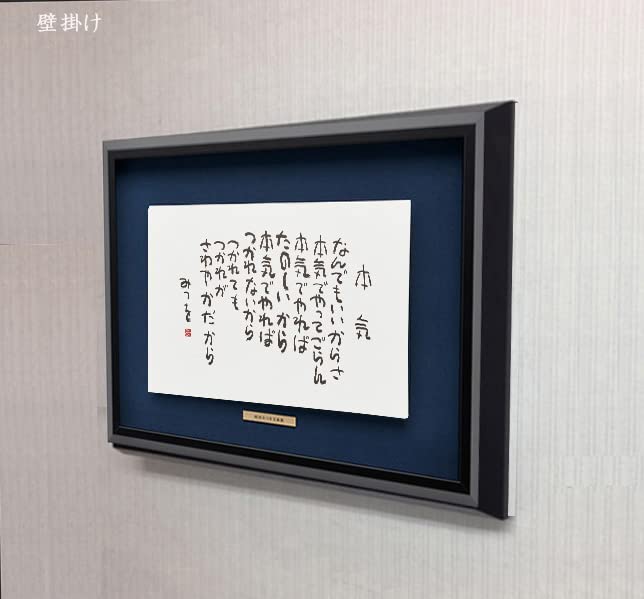 壁掛け
本気
なんでもいいからさ
本気でやってごらん
本気でやれば
たのしいから
本気でやれば
つかれないから
つかれても
つかれが
さわやかだから
みつを